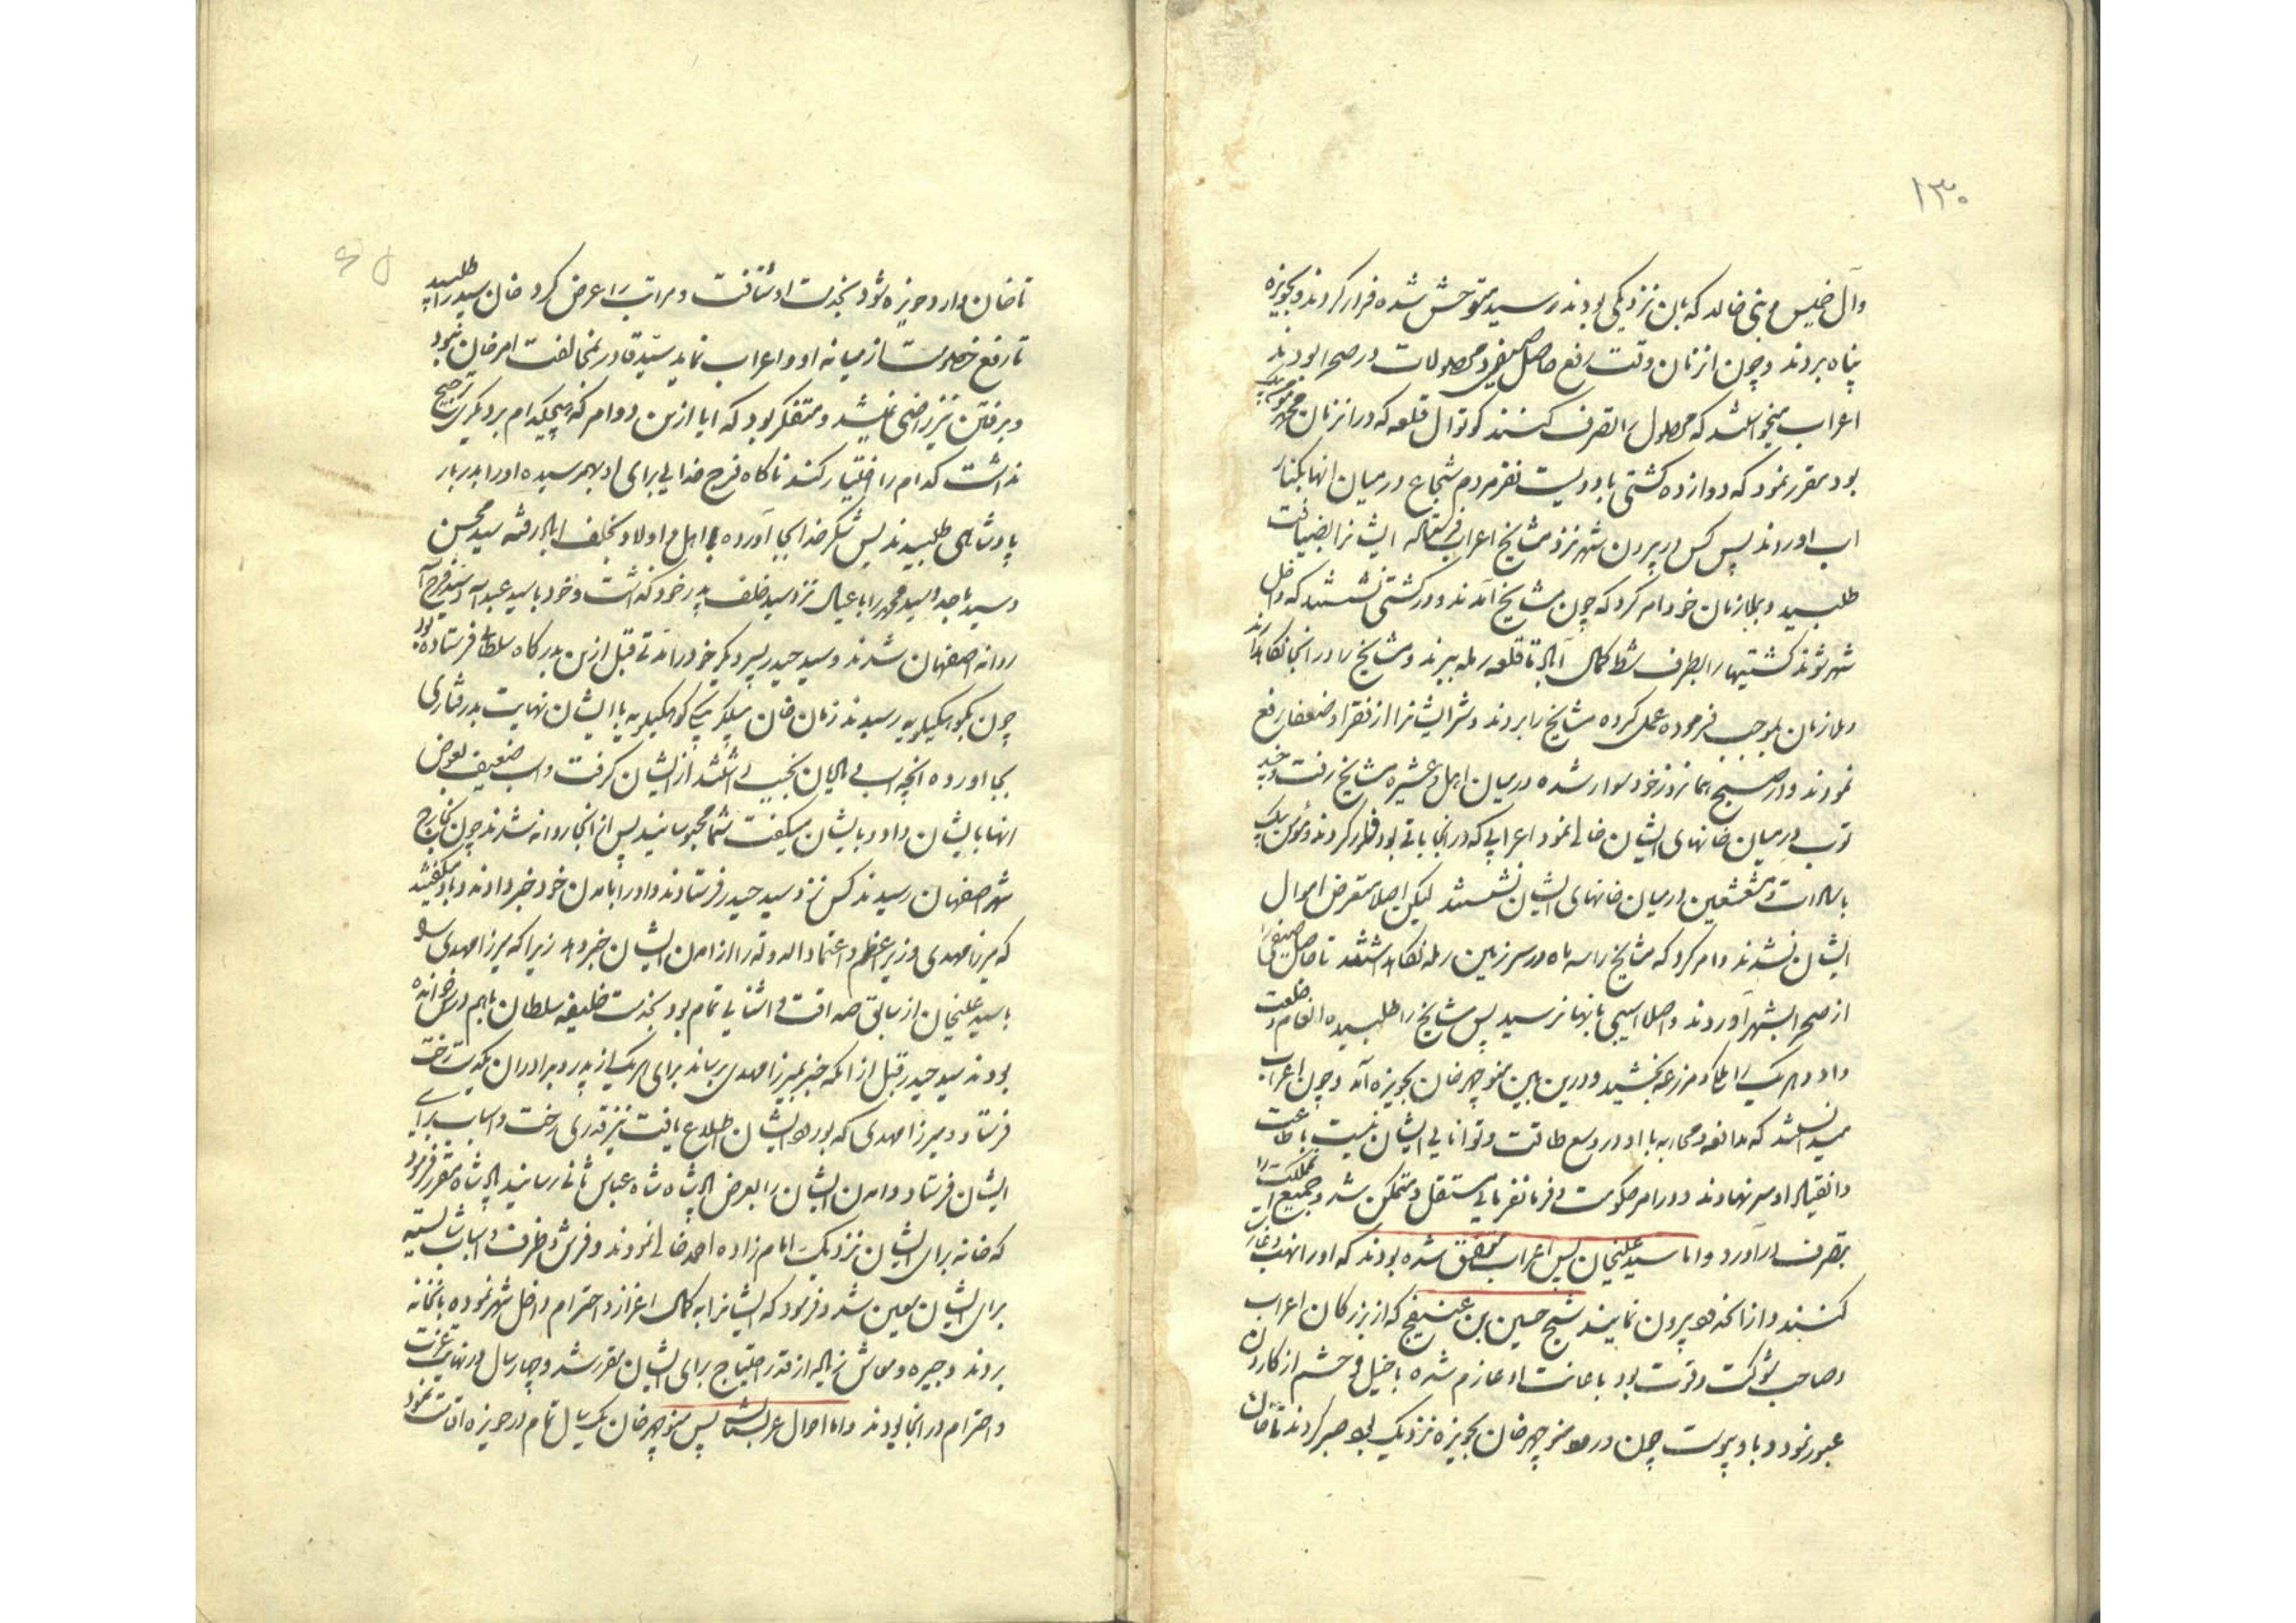 ۱۳۰
وآل خمیس و بنی خالد که بان نزدیکی بودند و سید متوحش شده فرار کردند و بحویزه
پناه بردند و چون انزمان وقت رفع حاصل صیفی و محصولات در صحرا بودند
اعراب میخواستند که محصول را تصرف کنند کوتوال قلعه که در انزمان محمد مومن بیک
بود مقرر نمود که دوازده کشتی با دویست نفر مردم شجاع در میان انها بکنار
اب اوردند پس کس در بیرون شهر نزد مشایخ اعراب فرستاده ایشانرا بضیافت
طلبید و بملازمان خود امر کرد که چون مشایخ آمدند و در کشتی نشستند که داخل
شهر شوند کشتیها را بطرف شط کمال آباد تا قلعه رمله ببرند و مشایخ را در انجا نگاه دارند
و ملازمان بموجب فرموده عمل کرده مشایخ را بردند و شر ایشانرا از فقرا و ضعفا رفع
نمودند و در صبح همانروز خود سوار شده در میان اهل و عشیره مشایخ رفت و چند
توپ در میان خانهای ایشان خالی نمود اعرابی که در انجا باقی بود فرار کردند و مومن بیک
با سادات و مشعشعین در میان خانهای ایشان نشستند لیکن اصلا متعرض اموال
ایشان نشدند و امر کرد که مشایخ را سه ماه در سرزمین رمله نگاه داشتند تا حاصل صیفی را
از صحرا بشهر آوردند و اصلا اسیبی بانها نرسید پس مشایخ را طلبیده انعام و خلعت
داد و هر یک را ملک و مزرعه بخشید و درین بین منوچهر خان بحویزه آمد و چون اعراب
میدانستند که مدافعه و محاربه با او در وسع طاقت و توانایی ایشان نیست باطاعت
و انقیاد او سر نهادند و در امر حکومت و فرمانفرمایی مستقل و متمکن شد و جمیع ان مملکت را
بتصرف در آورد و اما سید علیخان پس اعراب متفق شده بودند که او را نهب و غارت
کنند و از انحدود بیرون نمایند شیخ حسین بن عنیفج که از بزرگان اعراب
و صاحب شوکت و قوت بود باعانت او عازم شده با خیل و حشم از کارون
عبور نمود و باو پیوست چون ورود منوچهر خان بحویزه نزدیک بود صبر کردند تا خان
تا خان وارد حویزه شود بخدمت او شتافت و مراتب را عرض کرد خان سید را طلبید
تا رفع خصومت از میانه او و اعراب نماید سید قادر بمخالفت امر خان نبود
و برفتن نیز راضی نمیشد و متفکر بود که ایا ازین دو امر که هیچیکدام بر دیگری ترجیح
نداشت کدام را اختیار کند ناکاه فرج خدایی برای او بهم رسیده او را بدربار
پادشاهی طلبیدند پس شکر خدا بجا آورده با اهل و اولاد بخلف اباد رفته سید محسن
و سید ماجد و سید محمد را با عیال نزد سید خلف پدر خود گذاشت و خود با سید عبدالله و سید فرج الله
روانه اصفهان شدند و سید حیدر پسر دیگر خود را مدتی قبل ازین بدرگاه سلطانی فرستاده بود
چون بکوهکیلویه رسیدند زمان خان بیگلربیگی کوهکیلویه با ایشان نهایت بدرفتاری
بجا اورده انچه اسب و مادیان نجیب داشتند از ایشان گرفت و اسب ضعیف بعوض
انها بایشان داد و بایشان میگفت شما محبوسانید پس از انجا روانه شدند چون بخارج
شهر اصفهان رسیدند کس نزد سید حیدر فرستادند و او را بامدن خود خبر دادند و باو میگفتند
که میرزا مهدی وزیر اعظم و اعتماد الدوله را از امدن ایشان خبر دهد زیرا که میرزا مهدی
با سید علیخان از سابق صداقت و اشنایی تمام بود بخدمت خلیفه سلطان باهم درس خوانده
بودند سید حیدر قبل از انکه خبر بمیرزا مهدی رساند برای هر یک از پدر و برادران یکدست رخت
فرستاد و میرزا مهدی که بورود ایشان اطلاع یافت نیز قدری رخت و اسباب برای
ایشان فرستاد و امدن ایشان را بعرض پادشاه شاه عباس ثانی رسانید پادشاه مقرر فرمود
که خانه برای ایشان نزدیک امام زاده احمد خالی نمودند و فرش و ظرف و اسباب شایسته
برای ایشان معین شد و فرمود که ایشانرا به کمال اعزاز و احترام داخل شهر نموده بانخانه
بردند و جیره و معاش زیاده از قدر احتیاج برای ایشان مقرر شد و چهار سال در نهایت عزت
و احترام در انجا بودند و اما احوال عربستان پس منوچهر خان یک سال تمام در حویزه اقامت نمود